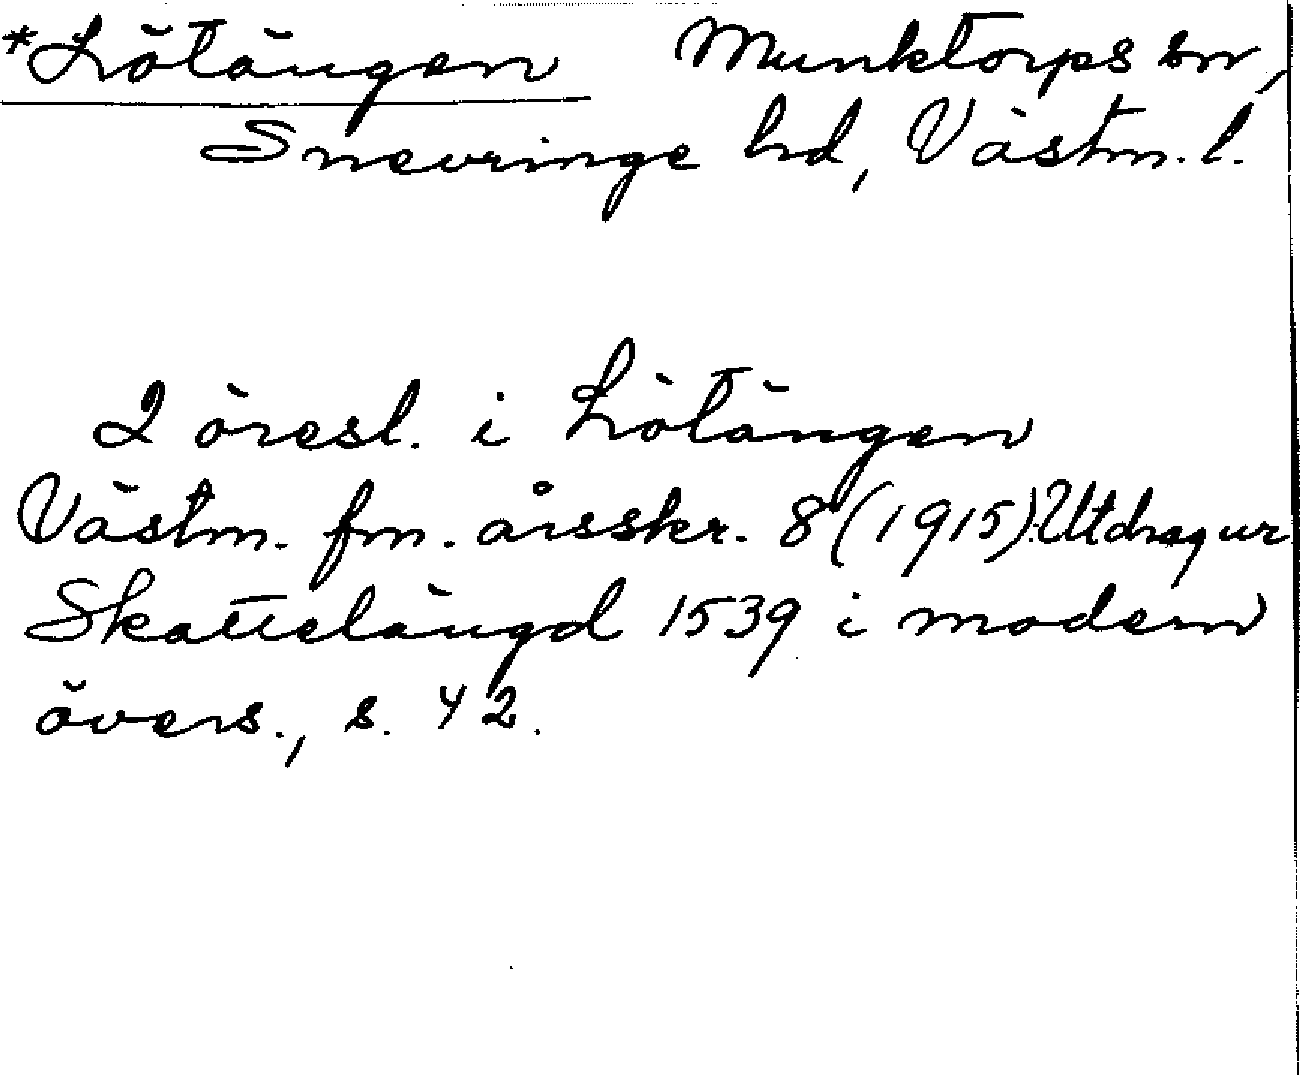 *Lötängen Munktorps sn,
Snevringe hd, Västm. l.
2 öresl. i Lötängen
Västm. fm. årsskr. 8 (1915). Utdrag ur
Skattelängd 1539 i modern
övers., s. 42.